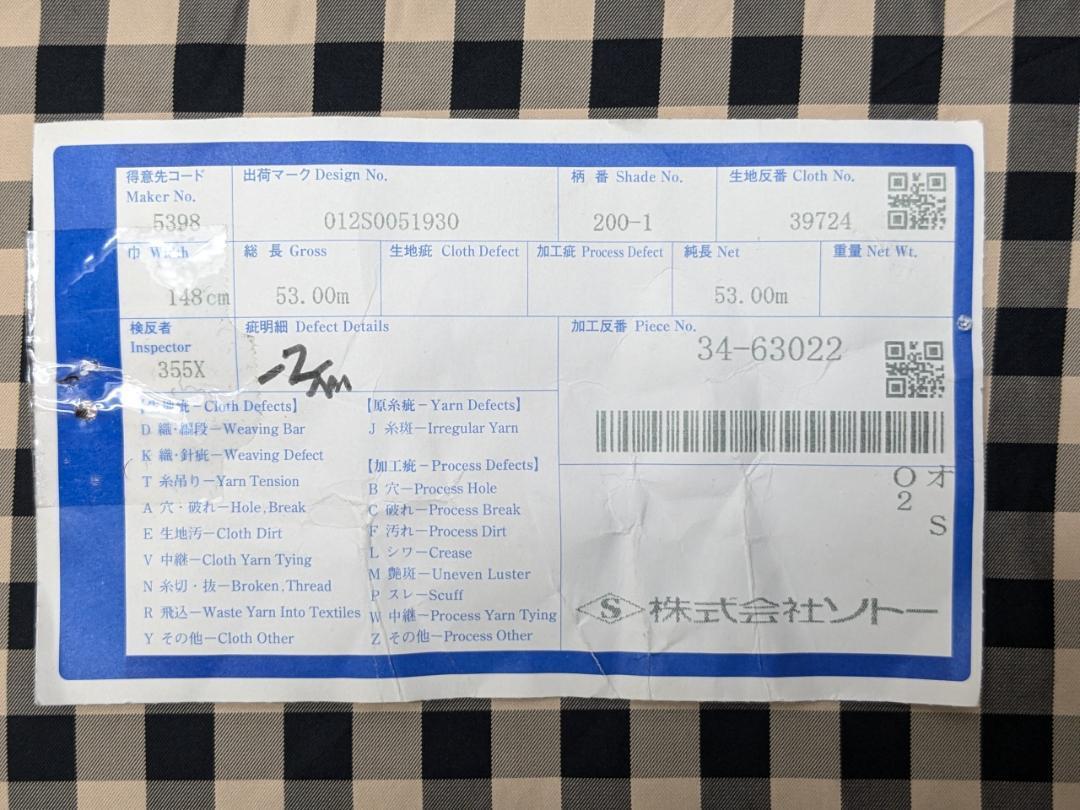 得意先コード
Maker No.
5398
出荷マーク Design No.
012S0051930
柄 番 Shade No.
200-1
生地反番 Cloth No.
39724
巾 Width
148cm
総 長 Gross
53.00m
生地疵 Cloth Defect
加工疵 Process Defect
純長 Net
53.00m
重量 Net Wt.
検反者
Inspector
355X
疵明細 Defect Details
-2
加工反番 Piece No.
34-63022
【生地疵－Cloth Defects】
D 織・編段－Weaving Bar
K 織・針疵－Weaving Defect
T 糸吊り－Yarn Tension
A 穴・破れ－Hole,Break
E 生地汚－Cloth Dirt
V 中継－Cloth Yarn Tying
N 糸切・抜－Broken,Thread
R 飛込－Waste Yarn Into Textiles
Y その他－Cloth Other
【原糸疵－Yarn Defects】
J 糸斑－Irregular Yarn
【加工疵－Process Defects】
B 穴－Process Hole
C 破れ－Process Break
F 汚れ－Process Dirt
L シワ－Crease
M 艶斑－Uneven Luster
P スレ－Scuff
W 中継－Process Yarn Tying
Z その他－Process Other
O オ
2
S
S 株式会社ソトー